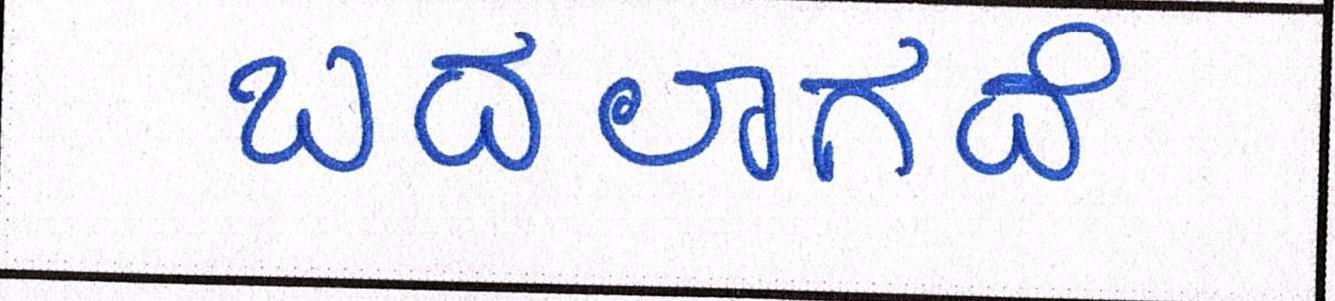 ಬದಲಾಗದೆ